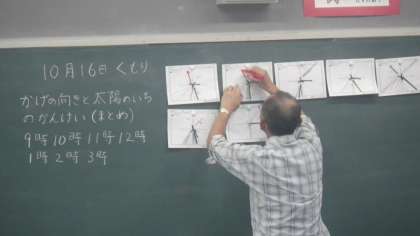 10月16日 くもり
かげの向きと太陽のいち
のかんけい(まとめ)
9時 10時 11時 12時
1時 2時 3時